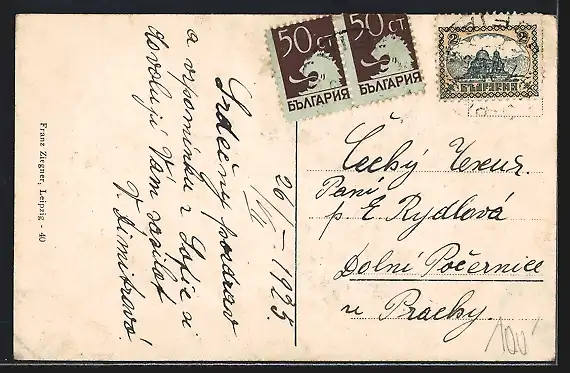 26/VI-1925.
Srdečný pozdrav
a vzpomínku z Sofie si
dovoluji Vám zasílat
V. Dimitrová.
Franz Ziegner, Leipzig - 40
50 СТ
БЪЛГАРИЯ
50 СТ
БЪЛГАРИЯ
2 2
БЪЛГАРИЯ
Paní
p. E. Rydlová
Dolní Počernice
u Prachy.
100